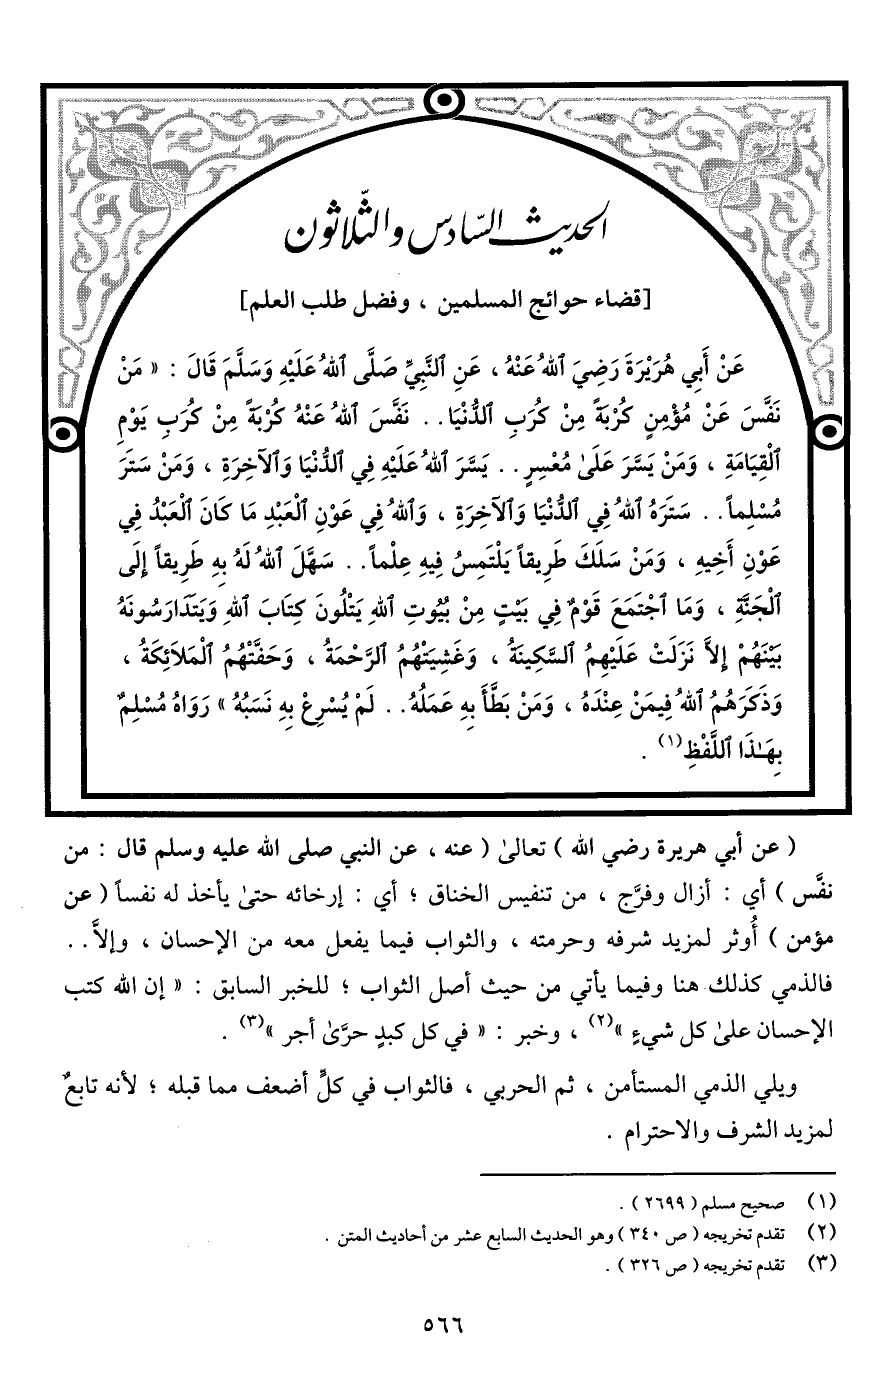 الحديث السّادس والثّلاثون
[قضاء حوائج المسلمين ، وفضل طلب العلم]
عَنْ أَبِي هُرَيْرَةَ رَضِيَ ٱللهُ عَنْهُ ، عَنِ ٱلنَّبِيِّ صَلَّى ٱللهُ عَلَيْهِ وَسَلَّمَ قَالَ : « مَنْ
نَفَّسَ عَنْ مُؤْمِنٍ كُرْبَةً مِنْ كُرَبِ ٱلدُّنْيَا . . نَفَّسَ ٱللهُ عَنْهُ كُرْبَةً مِنْ كُرَبِ يَوْمِ
ٱلْقِيَامَةِ ، وَمَنْ يَسَّرَ عَلَىٰ مُعْسِرٍ . . يَسَّرَ ٱللهُ عَلَيْهِ فِي ٱلدُّنْيَا وَٱلآخِرَةِ ، وَمَنْ سَتَرَ
مُسْلِماً . . سَتَرَهُ ٱللهُ فِي ٱلدُّنْيَا وَٱلآخِرَةِ ، وَٱللهُ فِي عَوْنِ ٱلْعَبْدِ مَا كَانَ ٱلْعَبْدُ فِي
عَوْنِ أَخِيهِ ، وَمَنْ سَلَكَ طَرِيقاً يَلْتَمِسُ فِيهِ عِلْماً . . سَهَّلَ ٱللهُ لَهُ بِهِ طَرِيقاً إِلَى
ٱلْجَنَّةِ ، وَمَا ٱجْتَمَعَ قَوْمٌ فِي بَيْتٍ مِنْ بُيُوتِ ٱللهِ يَتْلُونَ كِتَابَ ٱللهِ وَيَتَدَارَسُونَهُ
بَيْنَهُمْ إِلاَّ نَزَلَتْ عَلَيْهِمُ ٱلسَّكِينَةُ ، وَغَشِيَتْهُمُ ٱلرَّحْمَةُ ، وَحَفَّتْهُمُ ٱلْمَلاَئِكَةُ ،
وَذَكَرَهُمُ ٱللهُ فِيمَنْ عِنْدَهُ ، وَمَنْ بَطَّأَ بِهِ عَمَلُهُ . . لَمْ يُسْرِعْ بِهِ نَسَبُهُ » رَوَاهُ مُسْلِمٌ
بِهَـٰذَا ٱللَّفْظِ(١) .
( عن أبي هريرة رضي الله ) تعالىٰ ( عنه ، عن النبي صلى الله عليه وسلم قال : من
نفَّس ) أي : أزال وفرَّج ، من تنفيس الخناق ؛ أي : إرخائه حتىٰ يأخذ له نفساً ( عن
مؤمن ) أُوثر لمزيد شرفه وحرمته ، والثواب فيما يفعل معه من الإحسان ، وإلاَّ . .
فالذمي كذلك هنا وفيما يأتي من حيث أصل الثواب ؛ للخبر السابق : « إن الله كتب
الإحسان علىٰ كل شيءٍ »(٢) ، وخبر : « في كل كبدٍ حرَّىٰ أجر »(٣) .
ويلي الذمي المستأمن ، ثم الحربي ، فالثواب في كلٍّ أضعف مما قبله ؛ لأنه تابعٌ
لمزيد الشرف والاحترام .
(١) صحيح مسلم ( ٢٦٩٩ ) .
(٢) تقدم تخريجه ( ص ٣٤٠ ) وهو الحديث السابع عشر من أحاديث المتن .
(٣) تقدم تخريجه ( ص ٣٢٦ ) .
٥٦٦